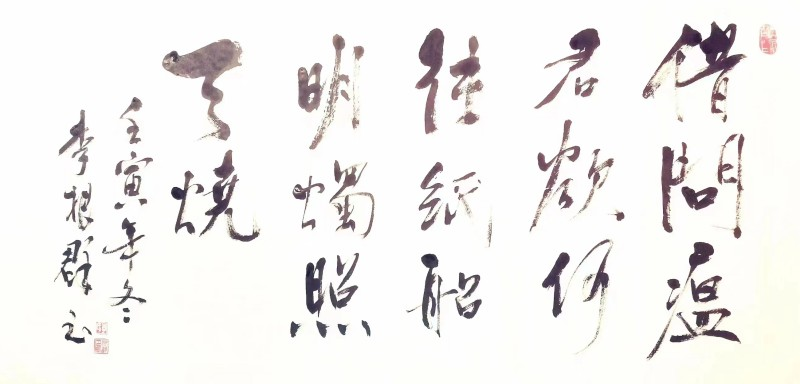 借問瘟
君欲何
往紙船
明燭照
天燒
壬寅年冬
李根群书